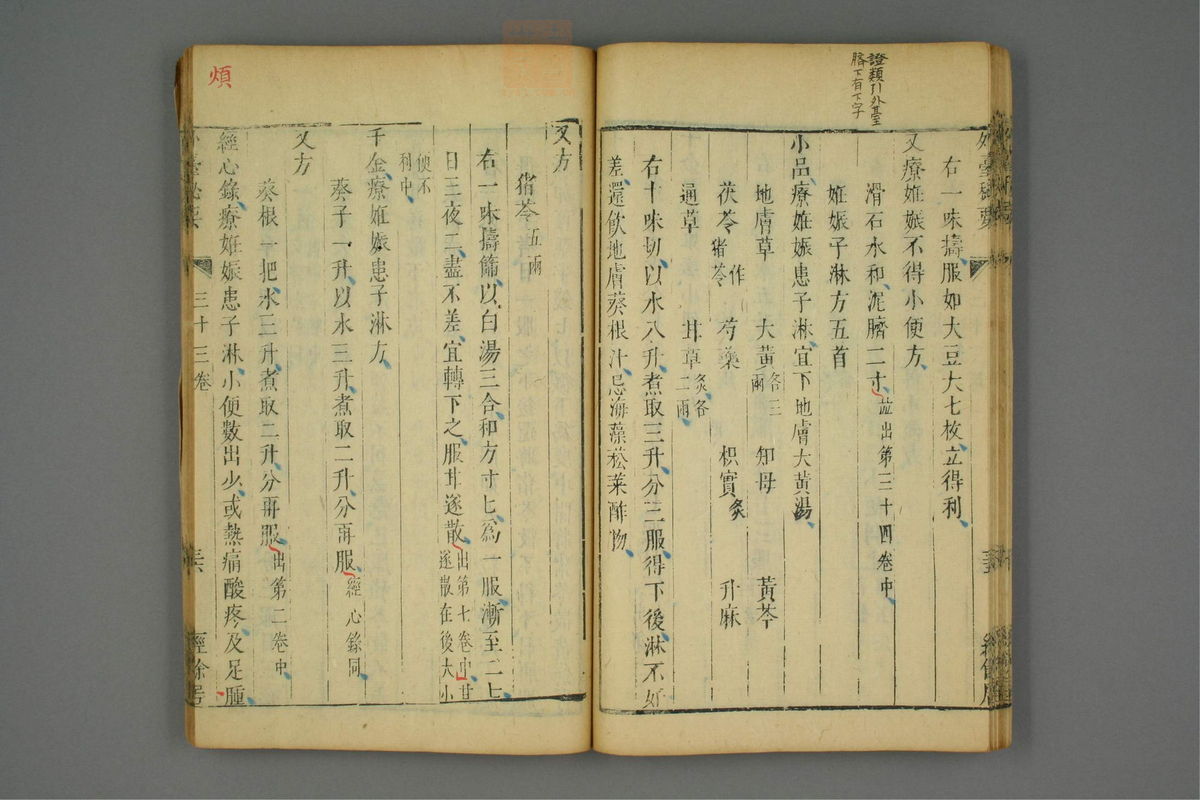 證類引外臺
臍下有下字
右一味擣服如大豆大七枚立得利
又療姙娠不得小便方
滑石水和泥臍二寸並出第三十四卷中
姙娠子淋方五首
小品療姙娠患子淋宜下地膚大黃湯
地膚草 大黃各三兩 知母 黃芩
茯苓猪苓作 芍藥 枳實炙 升麻
通草 甘草炙各二兩
右十味切以水八升煮取三升分三服得下後淋不好
差還飲地膚葵根汁忌海藻菘菜酢物
又方
猪苓五兩
右一味擣篩以白湯三合和方寸匕為一服漸至二匕
日三夜二盡不差宜轉下之服甘遂散出第七卷中甘遂散在後大小
便不利中
千金療姙娠患子淋方
葵子一升以水三升煮取二升分再服經心錄同
又方
葵根一把水三升煮取二升分再服出第二卷中
經心錄療姙娠患子淋小便數出少或熱痛酸疼及足腫
三十三卷
經餘居
煩